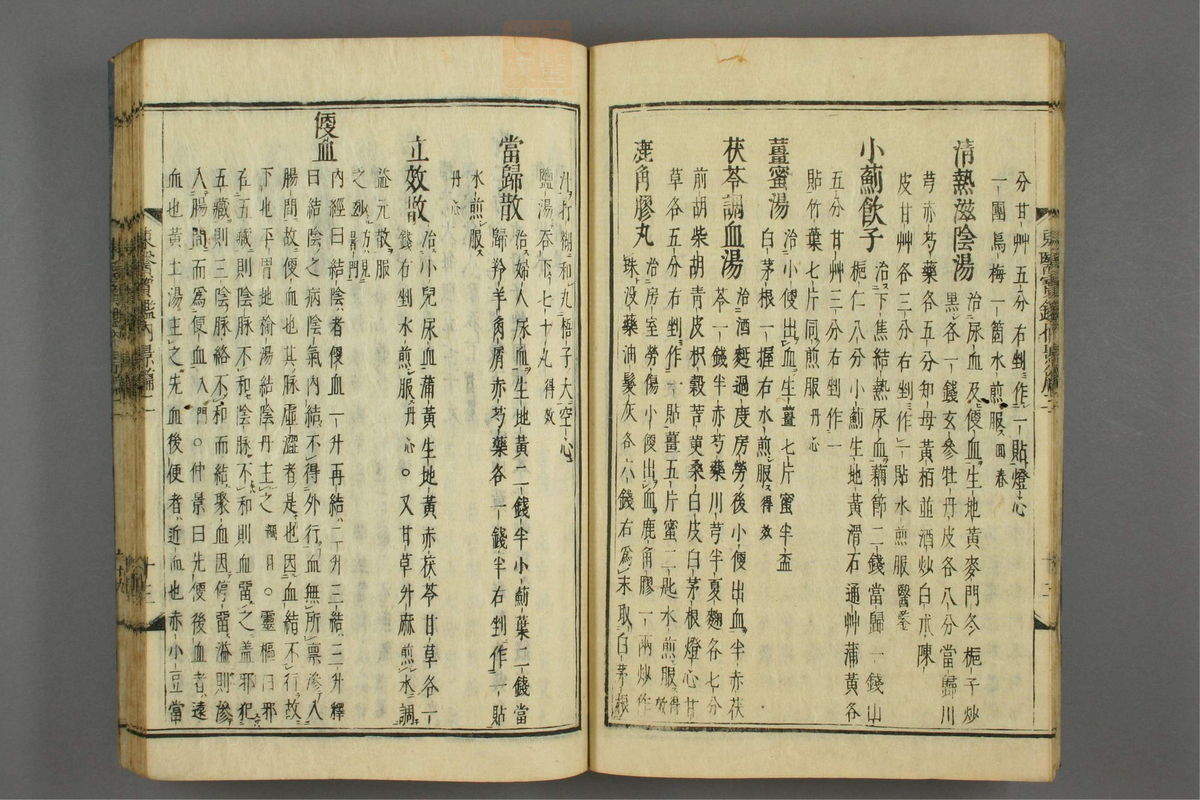 分甘艸五分右剉作一貼燈心
一團烏梅一箇水煎服回春
清熱滋陰湯治尿血及便血生地黃麥門冬梔子炒
黑各一錢玄參牡丹皮各八分當歸川
芎赤芍藥各五分知母黃栢並酒炒白朮陳
皮甘艸各三分右剉作一貼水煎服醫鑒
小薊飮子治下焦結熱尿血藕節二錢當歸一錢山
梔仁八分小薊生地黃滑石通艸蒲黃各
五分甘艸三分右剉作一
貼竹葉七片同煎服丹心
薑蜜湯治小便出血生薑七片蜜半盃
白茅根一握右水煎服得效
茯苓調血湯治酒麪過度房勞後小便出血半赤茯
苓一錢半赤芍藥川芎半夏麴各七分
前胡柴胡青皮枳殼苦莄桑白皮白茅根燈心甘
草各五分右剉作一貼薑五片蜜二匙水煎服得效
鹿角膠丸治房室勞傷小便出血鹿角膠一兩炒作
珠沒藥油髮灰各六錢右爲末取白茅根
汁打糊和丸梧子大空心
鹽湯吞下七十丸得效
當歸散治婦人尿血生地黃二錢半小薊葉二錢當
歸羚羊角屑赤芍藥各一錢半右剉作一貼
水煎服
丹心
立效散治小兒尿血蒲黃生地黃赤茯苓甘草各一
錢右剉水煎服丹心○又甘草升麻煎水調
益元散服
之妙方見暑門
便血內經曰結陰者便血一升再結二升三結三升釋
曰結陰之病陰氣內結不得外行血無所禀滲入
腸間故便血也其脉虛澀者是也因血結不行故
下也平胃地榆湯結陰丹主之綱目○靈樞曰邪
在五藏則陰脉不和陰脉不和則血留之盖邪犯
五藏則三陰脉絡不和而結聚血因停留溢則滲
入腸間而爲便血入門○仲景曰先便後血者遠
血也黃土湯主之先血後便者近血也赤小豆當
東醫寶鑑內景篇二